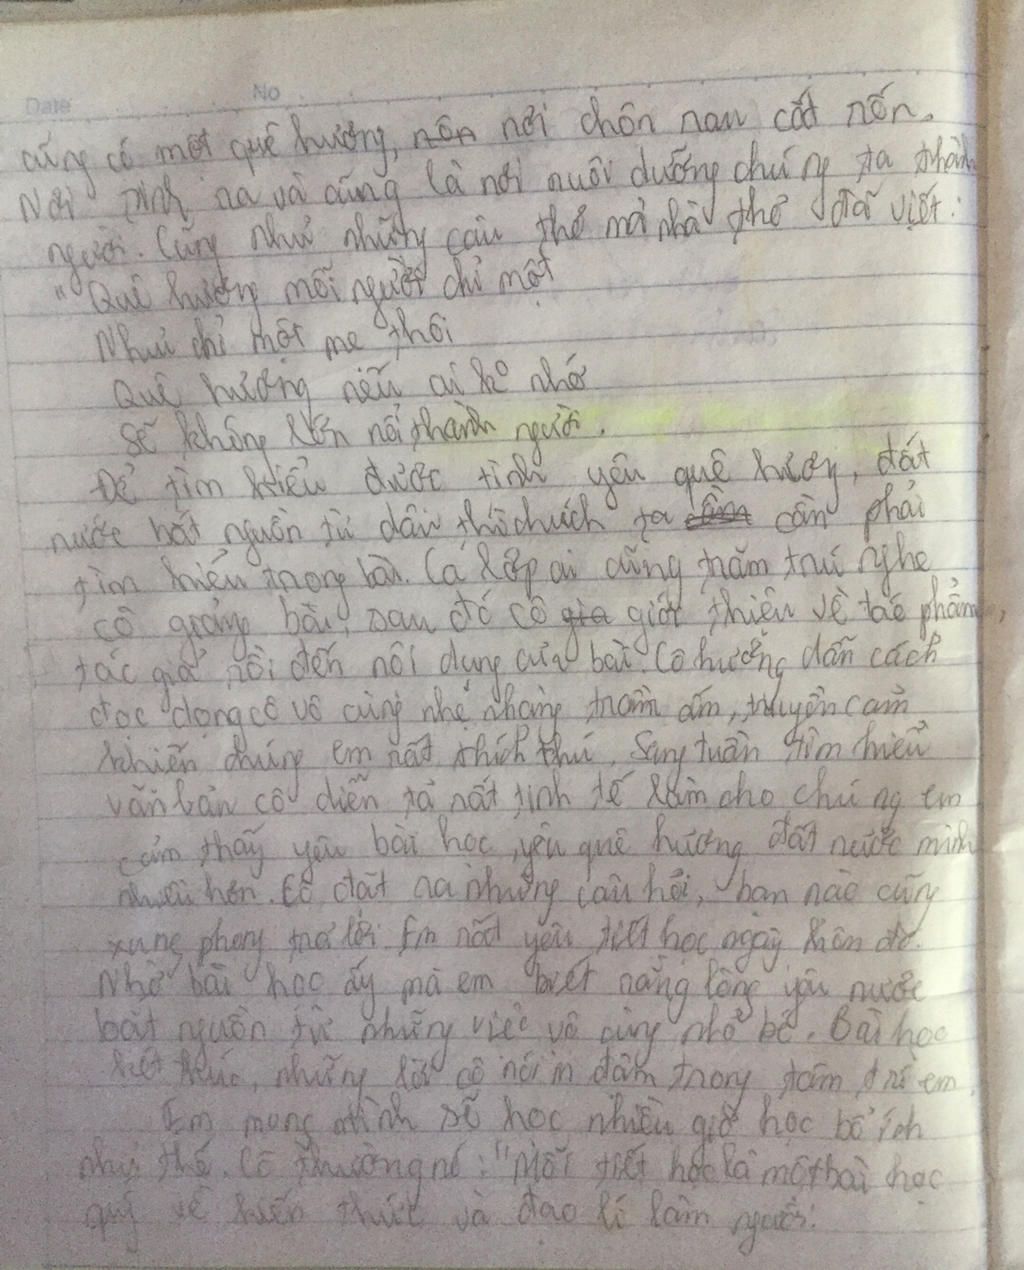 Date No
cũng có một quê hương, nôn nơi chôn nau cắt rốn.
Nơi sinh ra và cũng là nơi nuôi dưỡng chúng ta thành
người. Cũng như những câu thơ mà nhà thơ đã viết:
"Quê hương mỗi người chỉ một
Như chỉ một mẹ thôi
Quê hương nếu ai ko nhớ
Sẽ không lớn nổi thành người.
Để tìm hiểu được tình yêu quê hương, đất
nước bắt nguồn từ đâu thì ta cần phải
tìm hiểu trong bài. Cả lớp ai cũng trăm trú nghe
cô giảng bài, sau đó cô gia giới thiệu về tác phẩm,
tác giả rồi đến nội dung của bài. Cô hướng dẫn cách
đọc dọng cô vô cùng nhẹ nhàng trầm ấm, truyền cảm
khiến chúng em rất thích thú. Sang tuần tìm hiểu
văn bản cô diễn tả rất tinh tế làm cho chúng em
cảm thấy yêu bài học, yêu quê hương đất nước mình
nhiều hơn. Cô đặt ra những câu hỏi, bạn nào cũng
xung phong trả lời Em rất yêu tiết học ngày hôm đó.
Nhờ bài học ấy mà em biết rằng lòng yêu nước
bắt nguồn từ những việc vô cùng nhỏ bé. Bài học
kết thúc, những lời cô nói in đậm trong tâm trí em.
Em mong mình sẽ học nhiều giờ học bổ ích
như thế. Cô thường nó: "Mỗi tiết học là một bài học
quý về kiến thức và đạo lí làm người.